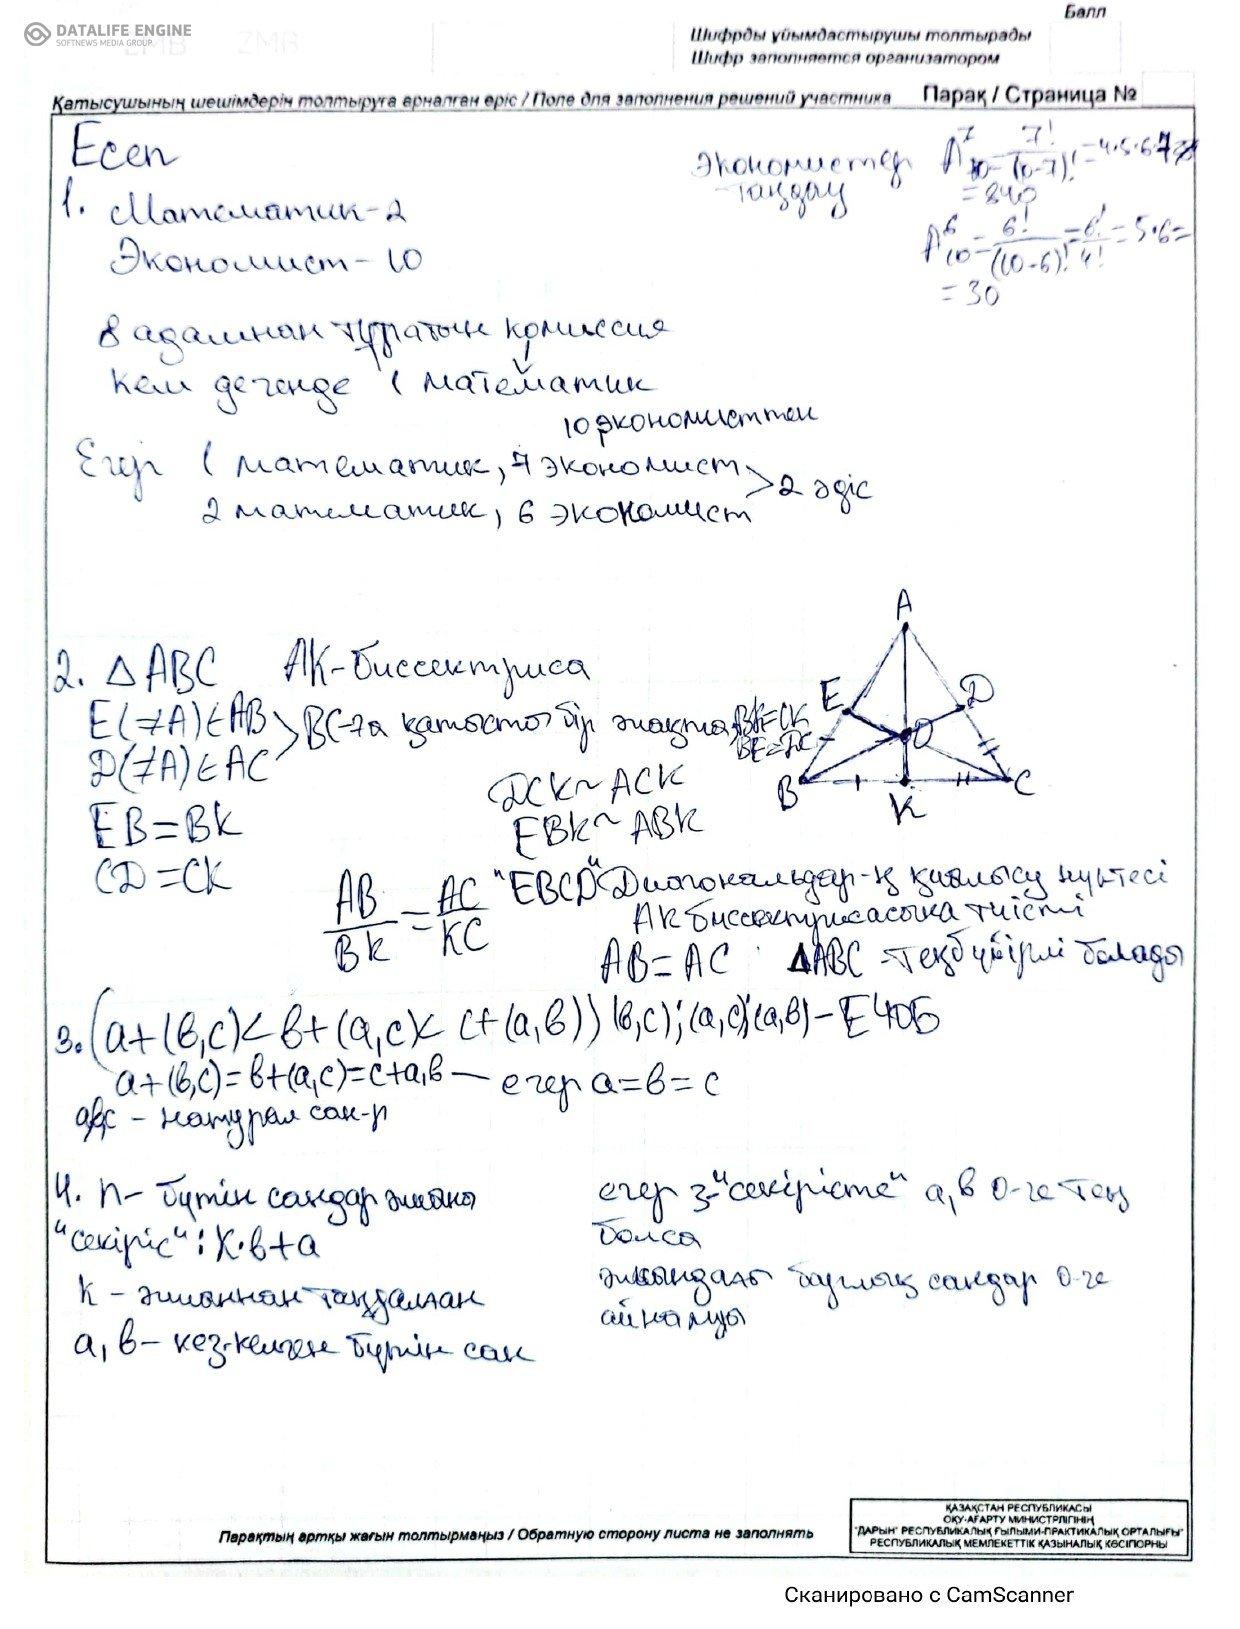 DATALIFE ENGINE
SOFTNEWS MEDIA GROUP
Балл
Шифрды ұйымдастырушы толтырады
Шифр заполняется организатором
Қатысушының шешімдерін толтыруға арналған өріс / Поле для заполнения решений участника Парақ / Страница №
Есеп
1. Математик-2
Экономист-10
Экономистер таңдау
A⁷₁₀=7!/(10-7)!=4·5·6·7
=840
A⁶₁₀=6!/(10-6)!=6!/4!=5·6=
=30
8 адамнан тұратын комиссия
Кем дегенде 1 математик
10 экономисттен
Егер 1 математик, 7 экономист
2 математик, 6 экономист > 2 әдіс
2. △ABC AK-биссектриса
E(≠A)∈AB
D(≠A)∈AC > BC-ға қатысты бір жақта
BK=CK
BE=DC
EB=BK
CD=CK
DCK~ACK
EBK~ABK
A
E
D
O
B
K
C
AB/BK=AC/KC
"EBCD" Диогональдар-ң қиылысу нүктесі
AK биссектрисасына тиісті
AB=AC △ABC-теңбүйірлі болады
3. (a+(в,c)<в+(a,c)<c+(a,в)) (в,c);(a,c);(a,в)-ЕҮОБ
a+(в,c)=в+(a,c)=c+a,в — егер a=в=c
aвc - натурал сан-р
4. n- бүтін сандар жиыны
"секіріс": K·в+a
K - жиыннан таңдалған
a, в- кез-келген бүтін сан
егер 3-"секірісте" a,в 0-ге тең
болса
жиындағы барлық сандар 0-ге
айналды
Парақтың артқы жағын толтырмаңыз / Обратную сторону листа не заполнять
ҚАЗАҚСТАН РЕСПУБЛИКАСЫ
ОҚУ-АҒАРТУ МИНИСТРЛІГІНІҢ
"ДАРЫН" РЕСПУБЛИКАЛЫҚ ҒЫЛЫМИ-ПРАКТИКАЛЫҚ ОРТАЛЫҒЫ"
РЕСПУБЛИКАЛЫҚ МЕМЛЕКЕТТІК ҚАЗЫНАЛЫҚ КӘСІПОРНЫ
Сканировано с CamScanner